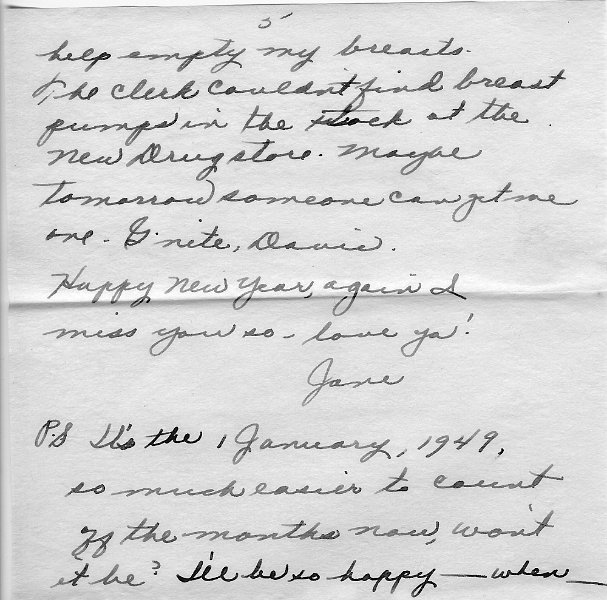 5
help empty my breasts.
The clerk couldn't find breast
pumps in the stock at the
New Drugstore. Maybe
tomorrow someone can get me
one. G'nite, Davie.
Happy New Year, again I
miss you so - love ya!
Jane
P.S It's the 1 January, 1949,
so much easier to count
off the months now, won't
it be? I'll be so happy — when —